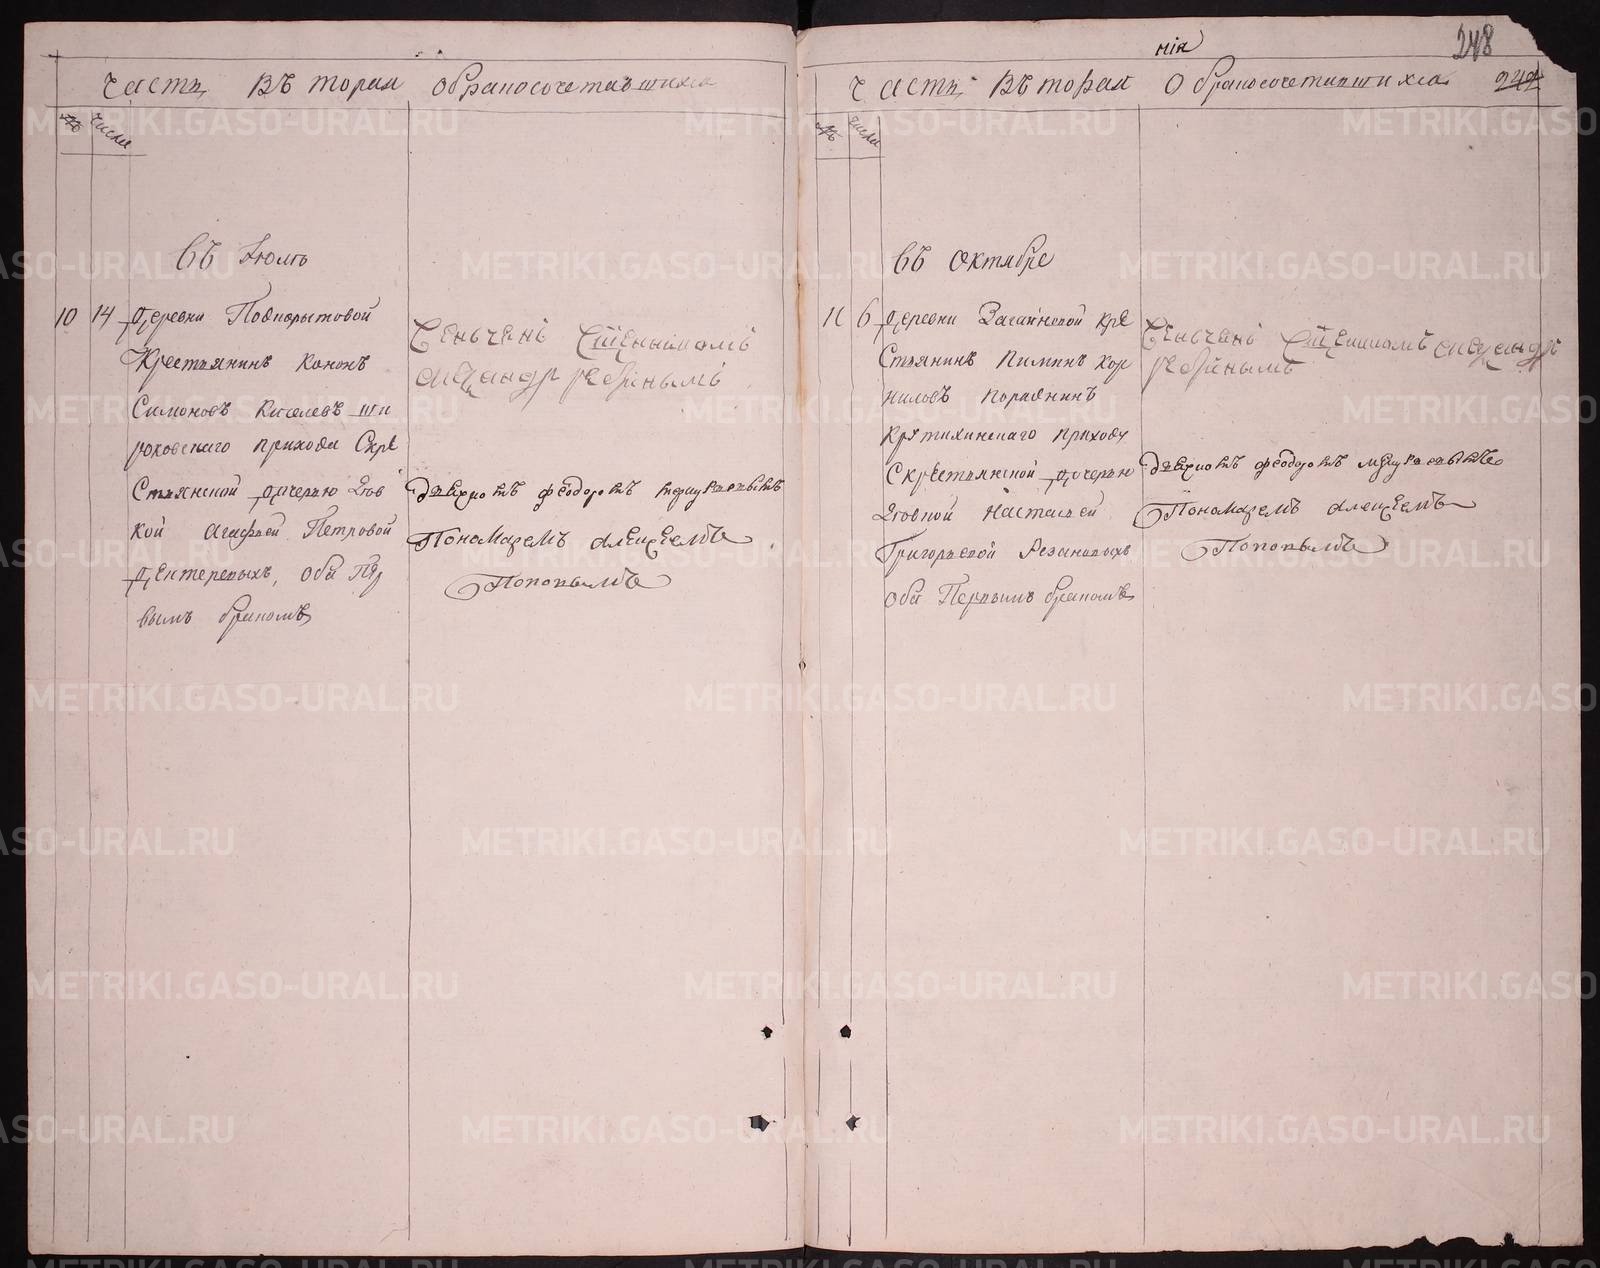 Часть Вторая о бракосочетавшихся
№ число
Въ Июлѣ
10 14 Деревни Подкорытовой
Крестьянинъ Кононъ
Симоновъ Киселевъ ши
роковскаго прихода Скре
Стьянской дочерью Дѣв
кой Агафьей Петровой
Дектеревыхъ, оба Пер
вымъ бракомъ
Венчанъ Сщенникомъ
Александр
Дьякономъ Феодоромъ
Пономаремъ Алексеемъ
Поповымъ
нія
248
Часть Вторая О бракосочетавшихся 242
№ число
Въ Октябре
11 6 Деревни Крѣ
Стьянинъ Пиминъ Кор
ниловъ Порадкинъ
Крутихинскаго приходу
Скрестьянской дочерью
Дѣвкой Настасьей
Григорьевой Резановыхъ
оба Первымъ бракомъ
Венчанъ Сщенникомъ Александр
Дьякономъ Феодоромъ
Пономаремъ Алексеемъ
Поповымъ
METRIKI.GASO-URAL.RU